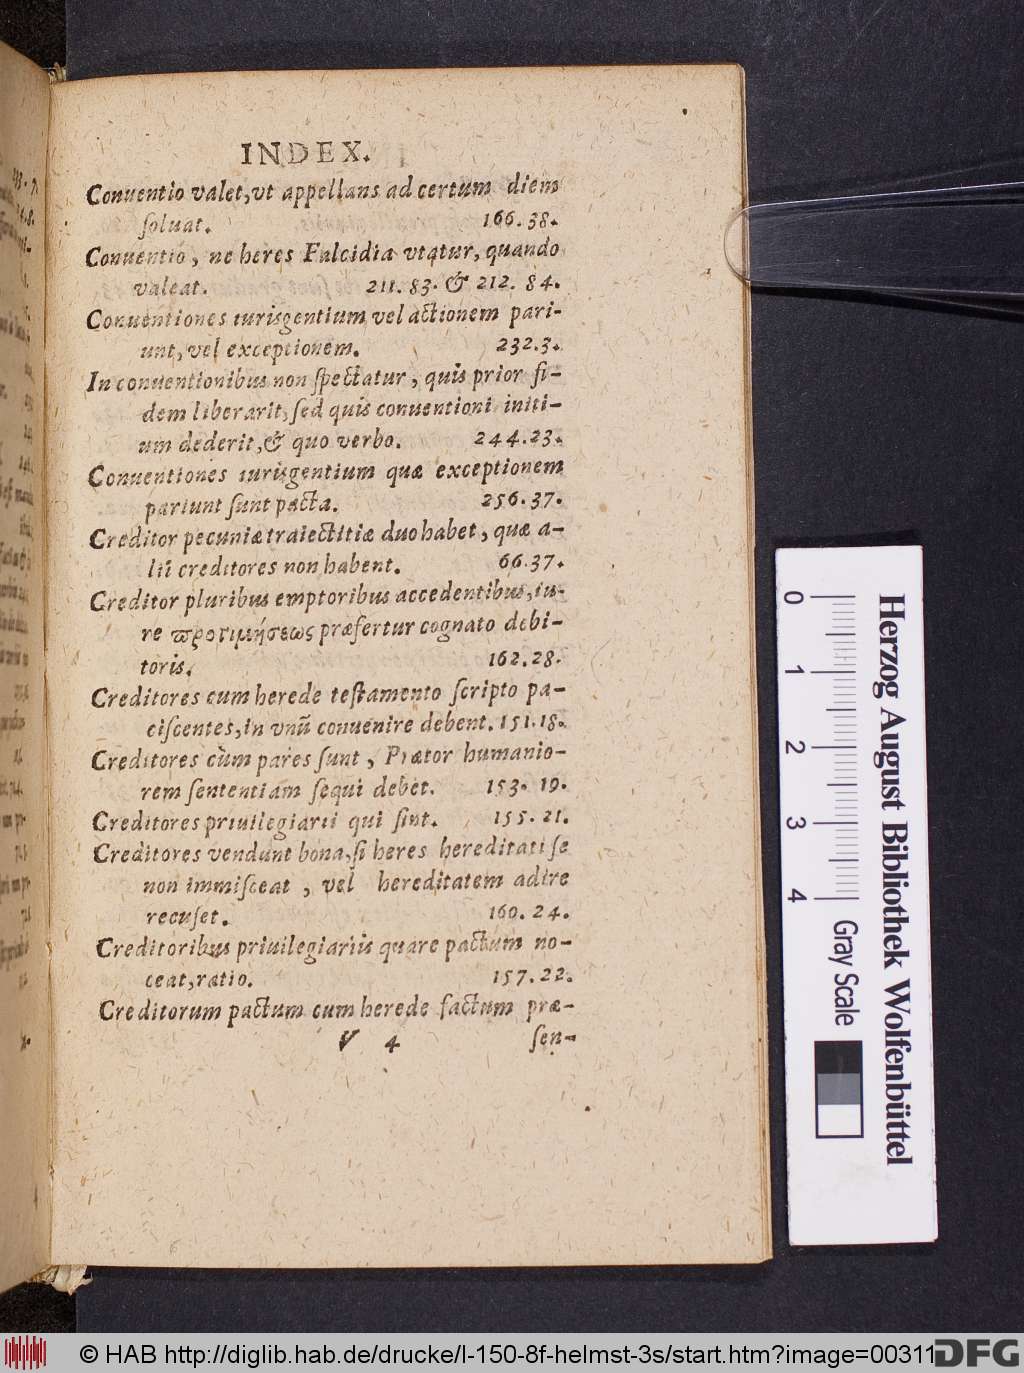 INDEX.
Conuentio valet, vt appellans ad certum diem
soluat. 166.38.
Conuentio, ne heres Falcidia vtatur, quando
valeat. 211. 83. & 212. 84.
Conuentiones iurisgentium vel actionem pari-
unt, vel exceptionem. 232.3.
In conuentionibus non spectatur, quis prior fi-
dem liberarit, sed quis conuentioni initi-
um dederit, & quo verbo. 244.23.
Conuentiones iurisgentium quæ exceptionem
pariunt sunt pacta. 256.37.
Creditor pecuniæ traiectitiæ duo habet, quæ a-
lii creditores non habent. 66.37.
Creditor pluribus emptoribus accedentibus, iu-
re προτιμήσεως præfertur cognato debi-
toris. 162.28.
Creditores cum herede testamento scripto pa-
ciscentes, in vnū conuenire debent. 151.18.
Creditores cùm pares sunt, Prætor humanio-
rem sententiam sequi debet. 153. 19.
Creditores priuilegiarii qui sint. 155. 21.
Creditores vendunt bona, si heres hereditati se
non immisceat, vel hereditatem adire
recuset. 160. 24.
Creditoribus priuilegiariis quare pactum no-
ceat, ratio. 157. 22.
Creditorum pactum cum herede factum præ-
V 4 sen-
Herzog August Bibliothek Wolfenbüttel
0 1 2 3 4 Gray Scale
© HAB http://diglib.hab.de/drucke/l-150-8f-helmst-3s/start.htm?image=00311
DFG